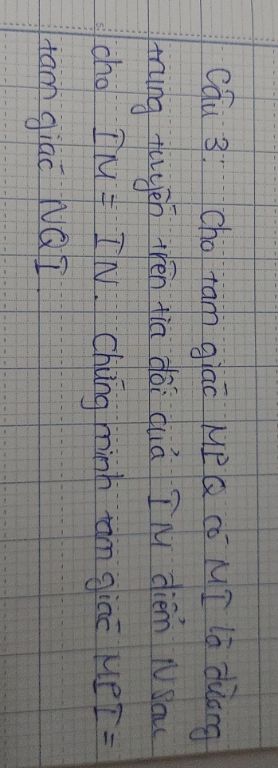 Câu 3: Cho tam giác MPQ có MI là đường
trung tuyến trên tia đối của IM điểm N sau
cho IM = IN. Chứng minh tam giác MPI =
tam giác NQI.